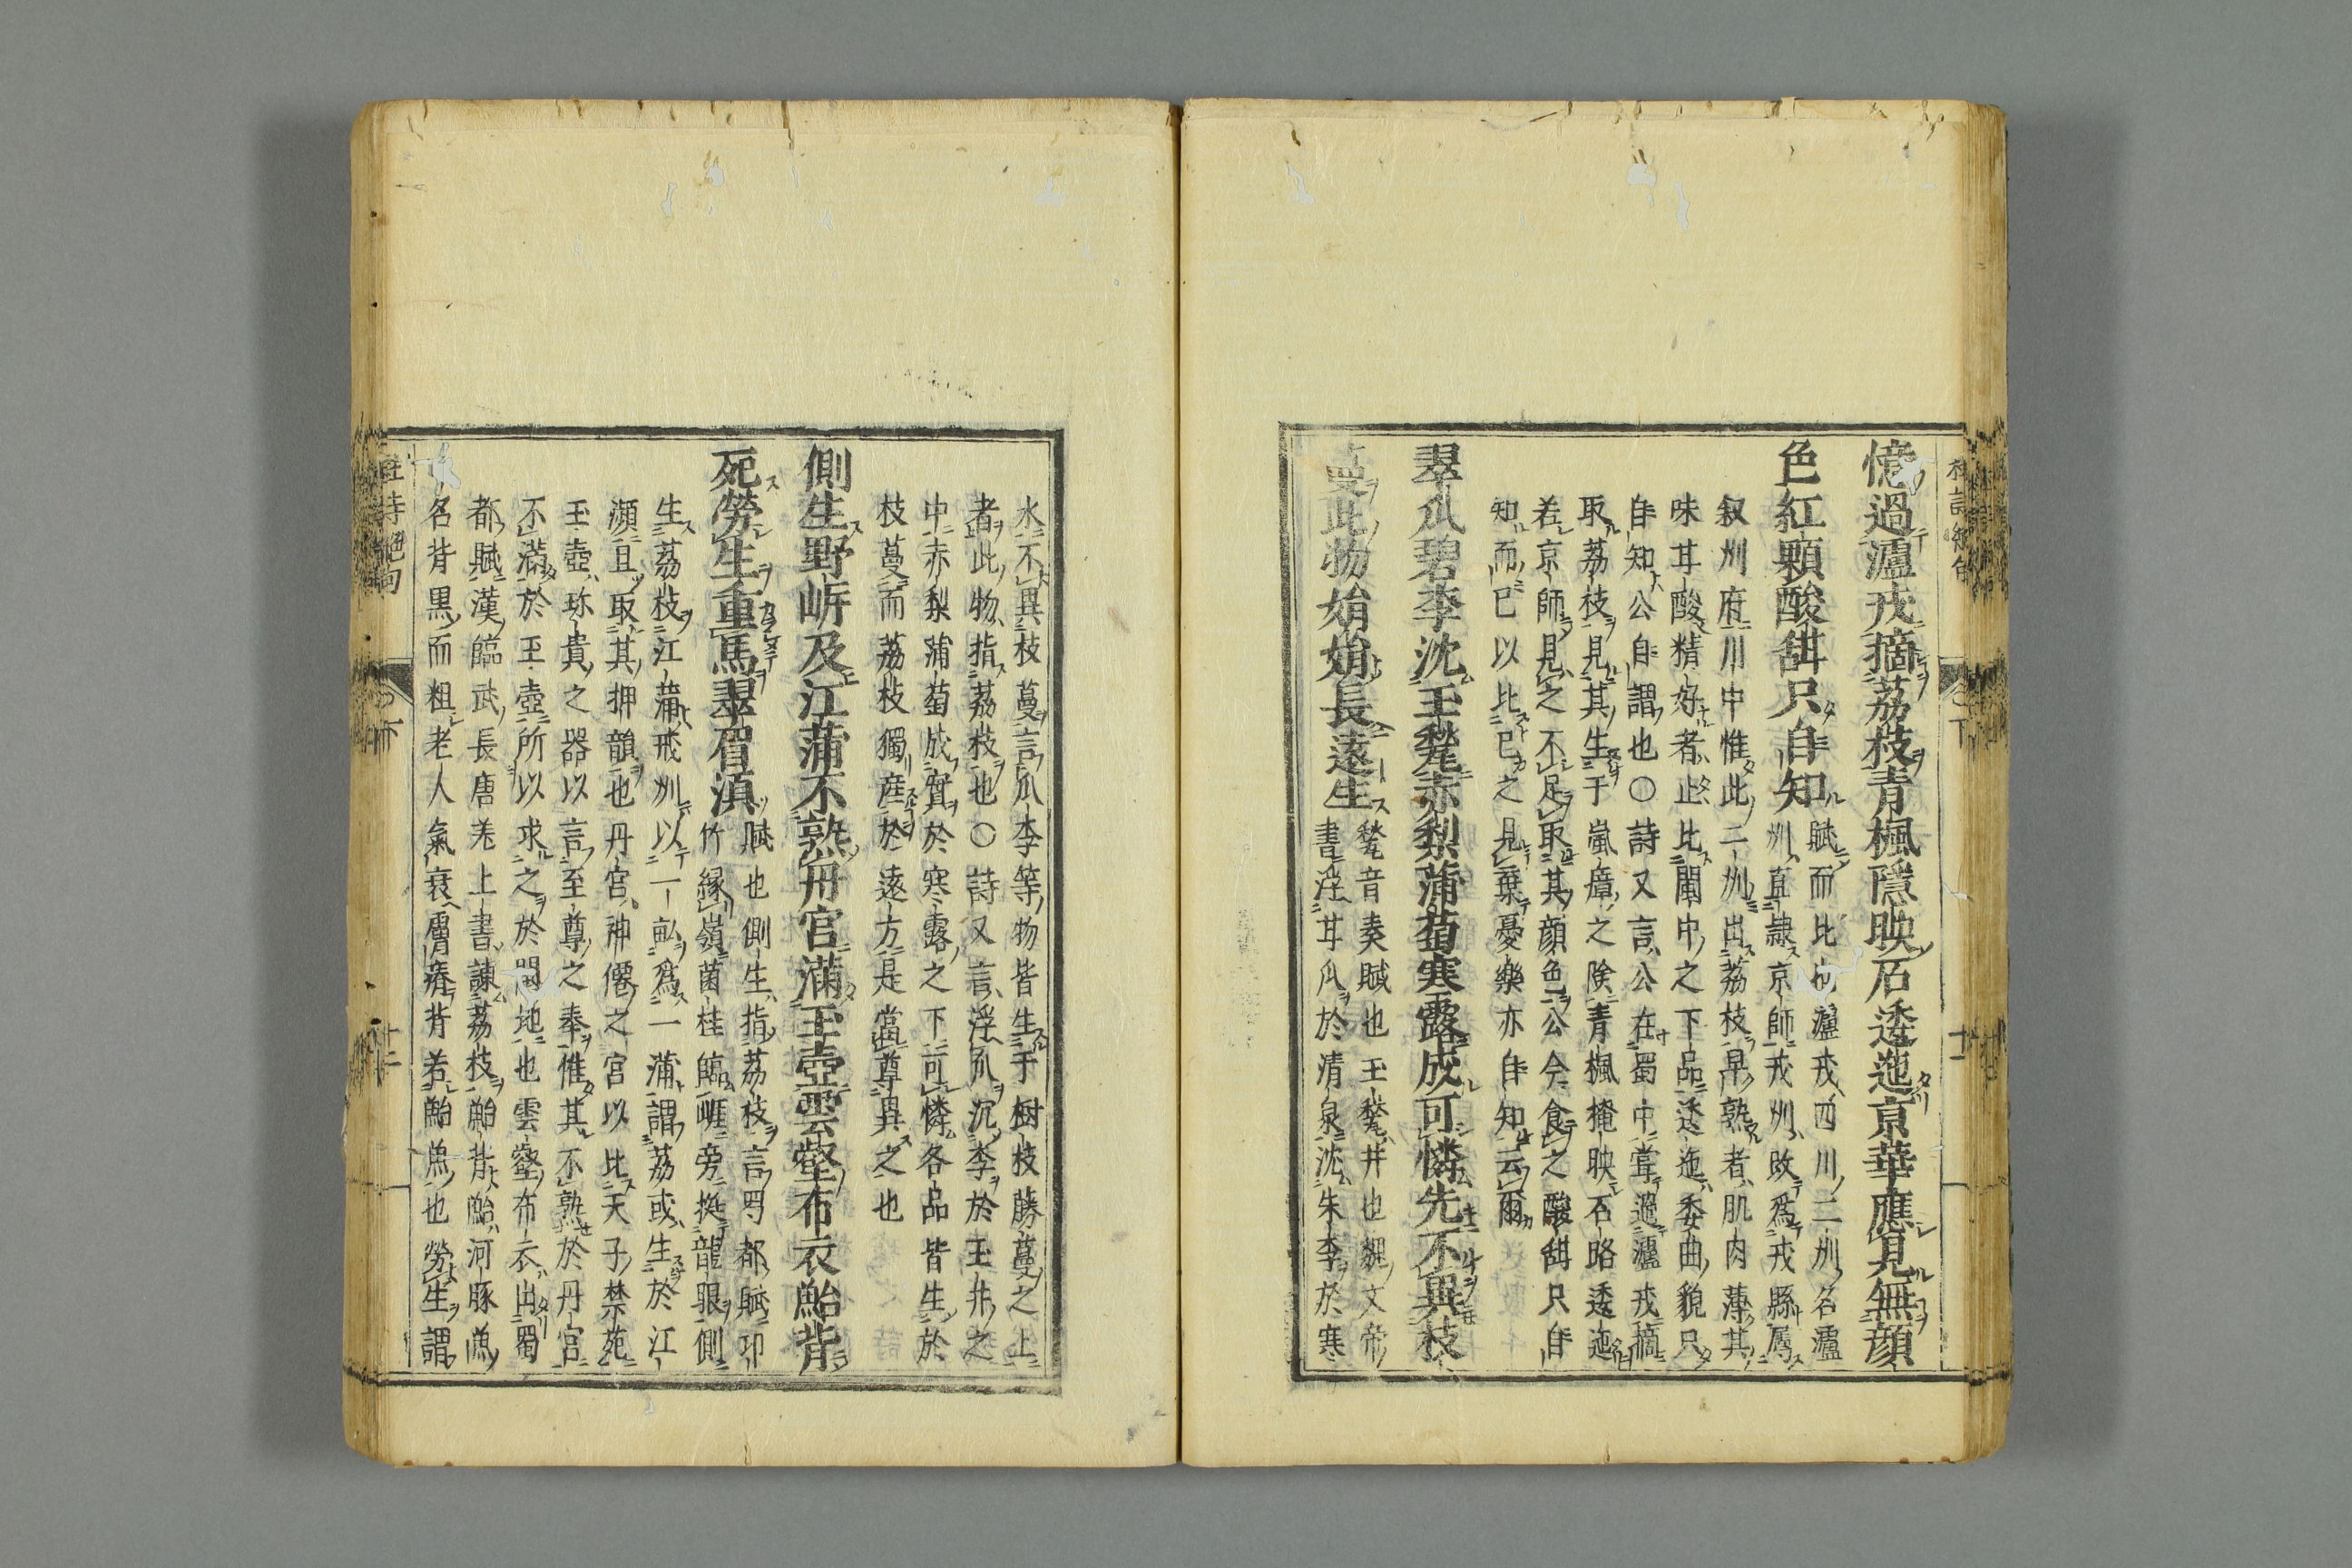 憶過瀘戎摘荔枝青楓隱映石逶迤京華應見無顔
色紅顆酸甜只自知
賦而比也瀘戎四川二州名瀘
州直隷京師戎州改爲戎縣属
叙州府川中惟此二州出荔枝早熟者肌肉薄其
味甘酸精好者止比閩中之下品逶迤委曲貌只
自知公自謂也○詩又言公在蜀中嘗過瀘戎摘
取荔枝見其生于嵐瘴之険青楓掩映石路逶迤
若京師見之不足取其顔色公今食之酸甜只自
知而已以比已之見棄憂樂亦自知云爾
翠瓜碧李沈玉甃赤梨蒲萄寒露成可憐先不異枝
蔓此物娟娟長遠生
甃音奏賦也玉甃井也魏文帝
書浮甘瓜於清泉沈朱李於寒
水不異枝蔓言瓜李等物皆生于樹枝藤蔓之上
者此物指荔枝也○詩又言浮瓜沉李於玉井之
中赤梨蒲萄成實於寒露之下可憐各品皆生於
枝蔓而荔枝獨産於遠方是當尊異之也
側生野岍及江蒲不熟丹宮滿玉壺雲壑布衣鮐背
死勞生重馬翠眉滇
賦也側生指荔枝言蜀都賦卭
竹縁嶺菌桂臨崕旁挺龍眼側
生荔枝江蒲戎州以一畝爲一蒲謂荔或生於江
瀕且取其押韻也丹宮神僊之宮以比天子禁苑
玉壺珎貴之器以言至尊之奉惟其不熟於丹宮
不滿於玉壺所以求之於閩地也雲壑布衣出蜀
都賦漢臨武長唐羌上書諫荔枝鮐背鮐河豚魚
名背黒而粗老人氣衰膚瘠背若鮐魚也勞生謂
杜詩絶句
十二